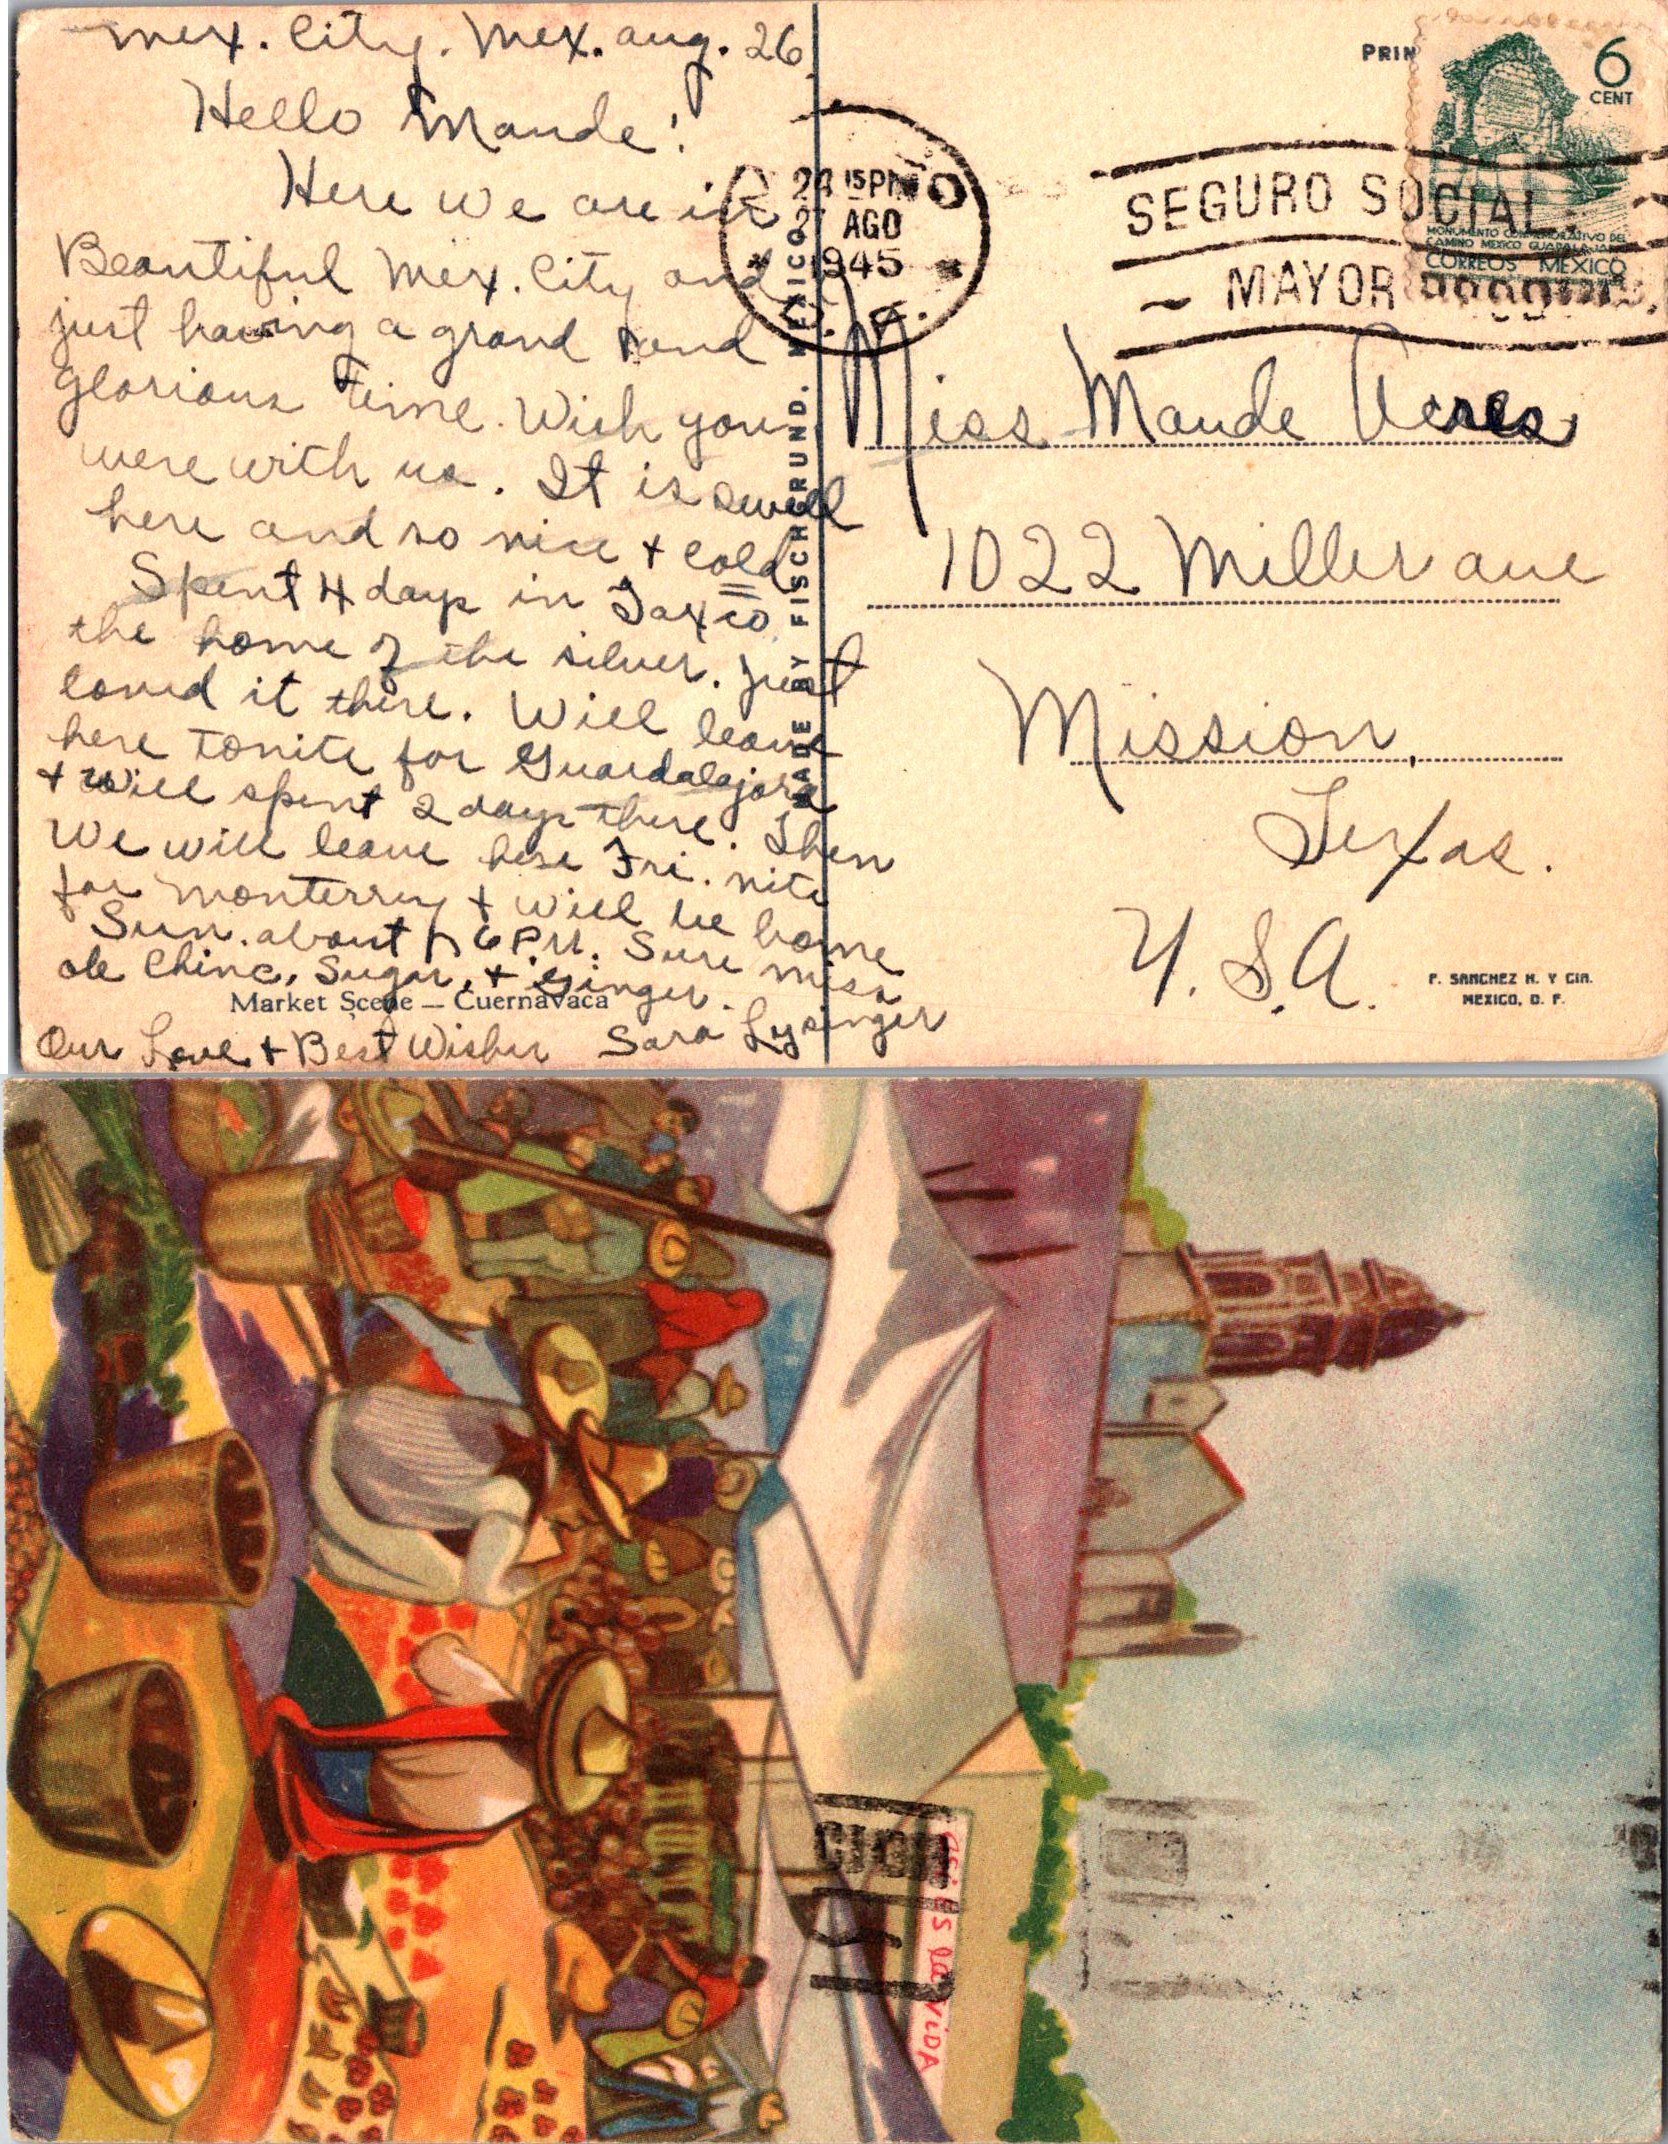 Mex. City. Mex. Aug. 26
Hello Maude!
Here we are in
Beautiful Mex. City and
just having a grand and
glorious time. Wish you
were with us. It is swell
here and so nice + cold
Spent 4 days in Taxco
the home of the silver. Just
loved it there. Will leave
here tonite for Guardalajara
+ will spent 2 days there. Then
we will leave here Fri. nite
for Monterrey + will be home
Sun. about 6 P.M. Sure miss
ole Chinc, Sugar, + Ginger.
Market Scene — Cuernavaca
Our Love + Best Wishes Sara Lysinger
MADE BY FISCHGRUND. MEXICO
PRIN
6
CENT
MONUMENTO CONMEMORATIVO DEL
CAMINO MEXICO GUADALAJARA
CORREOS MEXICO
15PM
27 AGO
1945
SEGURO SOCIAL,
MAYOR
Miss Maude Acres
1022 Miller Ave
Mission,
Texas.
U.S.A.
F. SANCHEZ H. Y CIA.
MEXICO, D. F.
ASi ES la ViDA